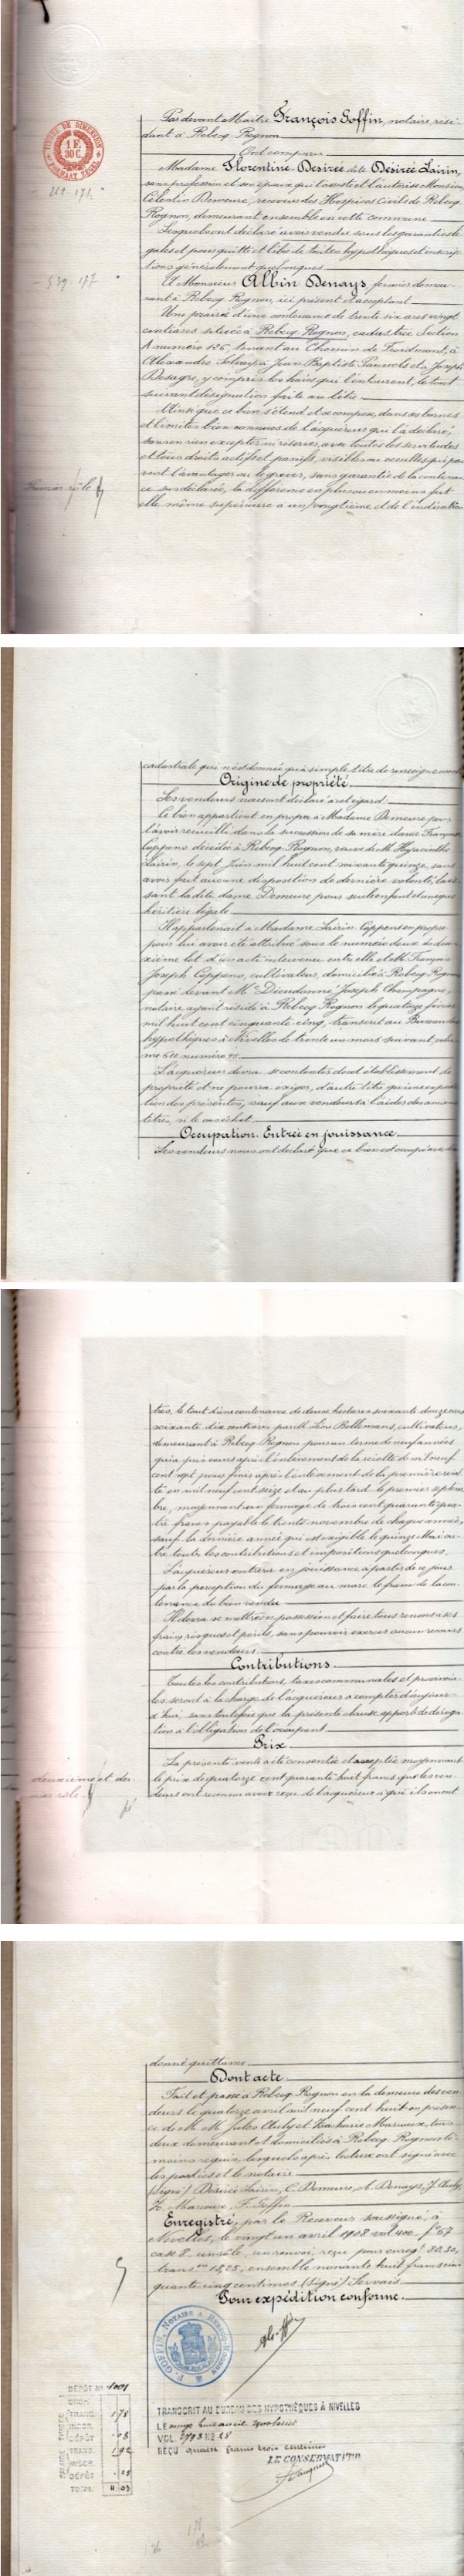 TIMBRE DE DIMENSION
1 F.
30 C.
Par devant Maître François Goffin, notaire rési-
dant à Rebecq Rognon
Ont comparu
Madame Florentine Désirée dite Désirée Lairin,
sans profession et son époux qui l'assiste et l'autorise Monsieur
Célestin Demeure, receveur des Hospices Civils de Rebecq
Rognon, demeurant ensemble en cette commune
Lesquels ont déclaré avoir vendu sous les garanties lé-
gales et pour quitte et libre de toutes hypothèques et inscrip-
tions généralement quelconques
A Monsieur Albin Denays, fermier demeu-
rant à Rebecq Rognon, ici présent et acceptant
Une prairie d'une contenance de trente six ares vingt
centiares située à Rebecq Rognon, cadastrée Section
A numéro 126, tenant au Chemin de Froidmont, à
Alexandre à Jean Baptiste Pauwels et à Joseph
Desagre, y compris les haies qui l'entourent, le tout
suivant désignation faite au titre
Ainsi que ce bien s'étend et se compose, dans ses bornes
et limites bien connues de l'acquéreur qui l'a déclaré,
sans en rien excepter ni réserver, avec toutes les servitudes
et tous droits actifs et passifs, visibles ou occultes qui peu-
vent l'avantager ou le grever, sans garantie de la contenan-
ce susdéclarée, la différence en plus ou en moins fut
elle même supérieure à un vingtième et de l'indication
premier rôle
cadastrale qui n'est donnée qu'à simple titre de renseignement
Origine de propriété
Les vendeurs nous ont déclaré à cet égard
Le bien appartient en propre à Madame Demeure pour
l'avoir recueilli dans la succession de sa mère dame Françoise
Coppens décédée à Rebecq Rognon, veuve de M. Hyacinthe
Lairin, le sept Juin mil huit cent soixante quinze, sans
avoir fait aucune disposition de dernière volonté, lais-
sant la dite dame Demeure pour seule enfant et unique
héritière légale
Il appartenait à Madame Lairin Coppens en propre
pour lui avoir été attribué sous le numéro deux du deu-
xième lot d'un acte intervenu entre elle et M. François
Joseph Coppens, cultivateur, domicilié à Rebecq Rognon
par devant M. Dieudonné Joseph Champagne,
notaire ayant résidé à Rebecq Rognon le quatorze février
mil huit cent cinquante cinq, transcrit au Bureau des
hypothèques à Nivelles le trente un mars suivant, volu-
me 611 numéro
L'acquéreur devra se contenter de cet établissement de
propriété et ne pourra exiger, d'autre titre qu'une expédi-
tion des présentes, sauf aux vendeurs à l'aider des anciens
titres, si le cas échet
Occupation. Entrée en jouissance
Les vendeurs nous ont déclaré que ce bien est occupé avec d'au-
tres, le tout d'une contenance de deux hectares soixante douze ares
soixante dix centiares par M. Léon Bellemans, cultivateur,
demeurant à Rebecq Rognon pour un terme de neuf années
qui a pris cours après l'enlèvement de la récolte de mil neuf
cent sept pour finir après l'enlèvement de la première récol-
te en mil neuf cent seize et au plus tard le premier septem-
bre, moyennant un fermage de trois cent quarante qua-
tre francs payable le trente novembre de chaque année,
sauf la dernière année qui est exigible le quinze Mai ou-
tre toutes les contributions et impositions quelconques
L'acquéreur entrera en jouissance à partir de ce jour
par la perception du fermage au marc le franc de la con-
tenance du bien vendu
Il devra se mettre en possession et faire tous renons à ses
frais, risques et périls, sans pouvoir exercer aucun recours
contre les vendeurs
Contributions
Toutes les contributions, taxes communales et provincia-
les seront à la charge de l'acquéreur à compter d'aujour-
d'hui, sans toutefois que la présente clause apporte de déroga-
tion à l'obligation de l'occupant
Prix
La présente vente a été consentie et acceptée moyennant
le prix de quatorze cent quarante huit francs que les ven-
deurs ont reconnu avoir reçu de l'acquéreur à qui ils en ont
deuxième et der-
nier rôle
donné quittance
Dont acte
Fait et passé à Rebecq Rognon en la demeure des ven-
deurs le quatorze avril mil neuf cent huit en présen-
ce de M. M. Jules Auly et Zacharie Marioux, tous
deux demeurant et domiciliés à Rebecq Rognon té-
moins requis, lesquels après lecture ont signé avec
les parties et le notaire
(Signé) Désirée Lairin, C. Demeure, A. Denays, J. Auly,
Z. Marioux, F. Goffin
Enregistré, par le Receveur soussigné, à
Nivelles, le vingt un avril 1908 vol 400 f° 67
case 8, un rôle, un renvoi, reçu pour enregt 80.30,
transon 18,25, ensemble nonante huit francs cin-
quante cinq centimes (Signé) Servais
Pour expédition conforme
F. GOFFIN, NOTAIRE A REBECQ-ROGNON
DÉPÔT N° 1001
TRANS. 1,78
INSCR.
DÉPÔT ,08
TRANS. 1,92
INSCR.
DÉPÔT ,25
TOTAL 4 03
TRANSCRIT AU BUREAU DES HYPOTHÈQUES À NIVELLES
LE
VOL. 2773 N° 28
REÇU quatre francs trois centimes
LE CONSERVATEUR